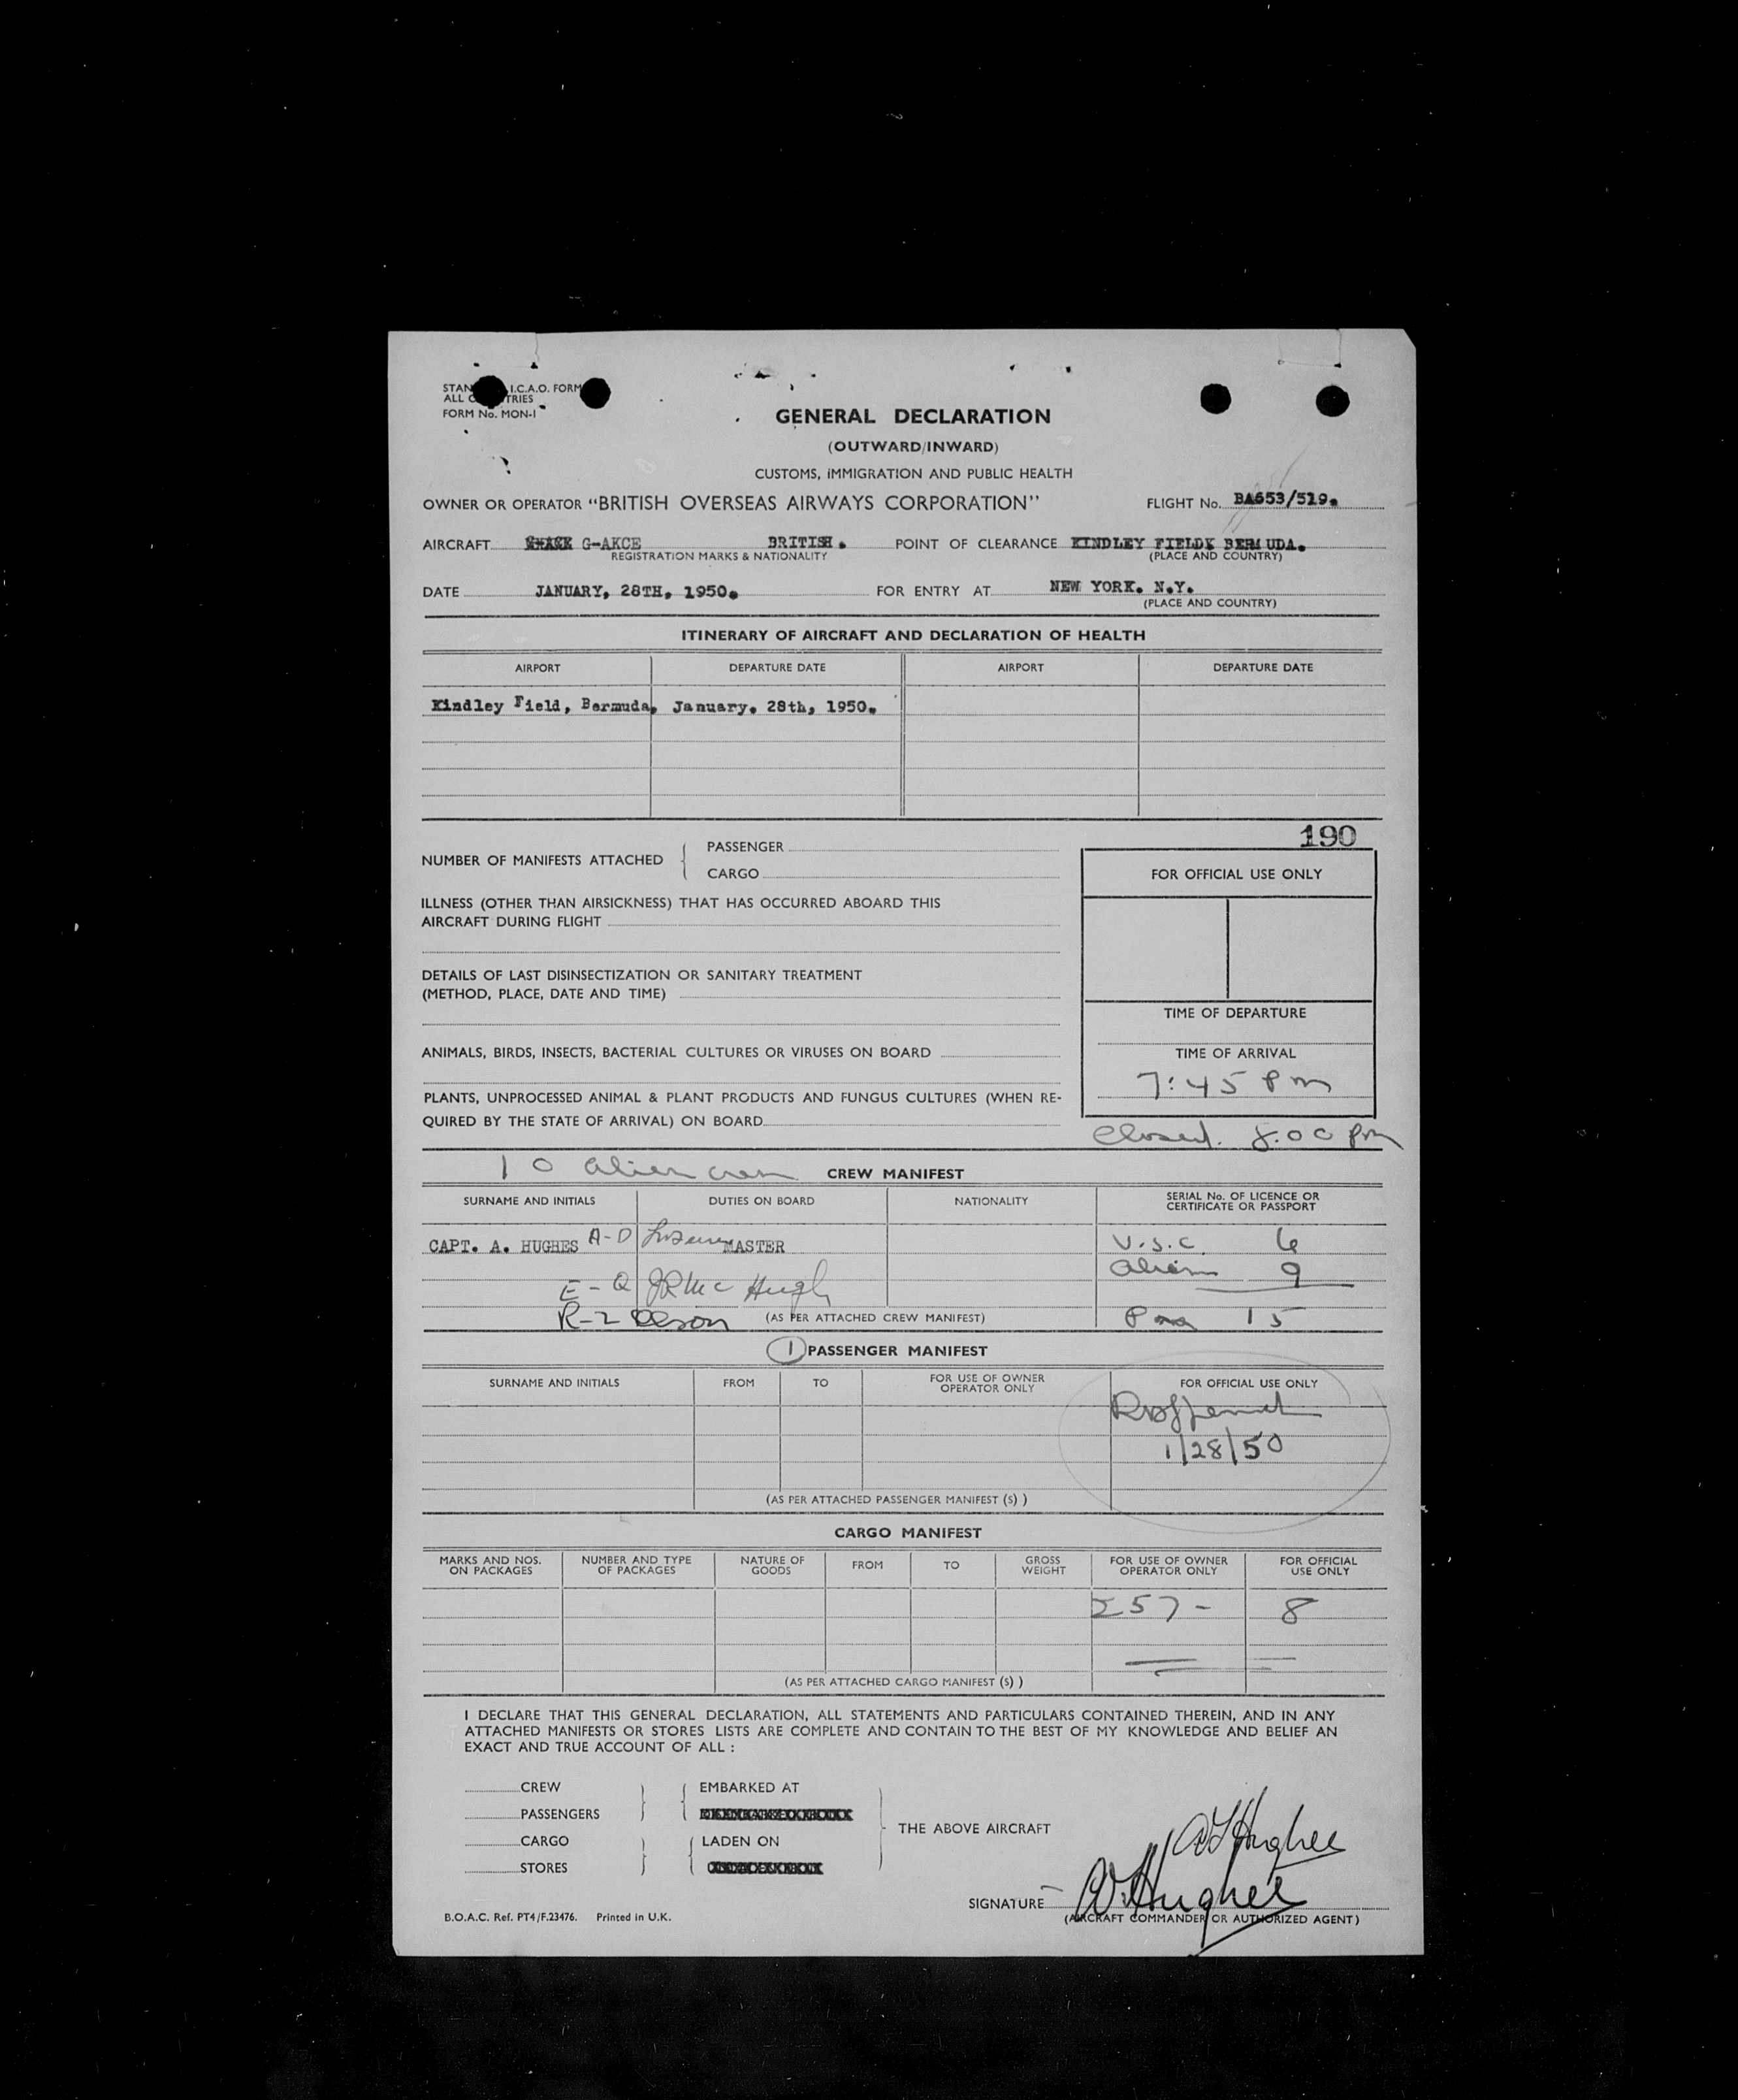 STAN I.C.A.O. FORM
ALL C TRIES
FORM No. MON-1
GENERAL DECLARATION
(OUTWARD/INWARD)
CUSTOMS, IMMIGRATION AND PUBLIC HEALTH
OWNER OR OPERATOR "BRITISH OVERSEAS AIRWAYS CORPORATION" FLIGHT No. BA653/519.
AIRCRAFT G-AKCE BRITISH. POINT OF CLEARANCE KINDLEY FIELDX BERMUDA.
REGISTRATION MARKS & NATIONALITY (PLACE AND COUNTRY)
DATE JANUARY, 28TH, 1950. FOR ENTRY AT NEW YORK. N.Y.
(PLACE AND COUNTRY)
ITINERARY OF AIRCRAFT AND DECLARATION OF HEALTH
AIRPORT DEPARTURE DATE AIRPORT DEPARTURE DATE
Kindley Field, Bermuda, January. 28th, 1950.
190
NUMBER OF MANIFESTS ATTACHED { PASSENGER
CARGO
FOR OFFICIAL USE ONLY
ILLNESS (OTHER THAN AIRSICKNESS) THAT HAS OCCURRED ABOARD THIS
AIRCRAFT DURING FLIGHT
DETAILS OF LAST DISINSECTIZATION OR SANITARY TREATMENT
(METHOD, PLACE, DATE AND TIME)
TIME OF DEPARTURE
ANIMALS, BIRDS, INSECTS, BACTERIAL CULTURES OR VIRUSES ON BOARD
TIME OF ARRIVAL
7:45 Pm
PLANTS, UNPROCESSED ANIMAL & PLANT PRODUCTS AND FUNGUS CULTURES (WHEN RE-
QUIRED BY THE STATE OF ARRIVAL) ON BOARD
Closed. 8.00 pm
10 alien crew CREW MANIFEST
SURNAME AND INITIALS DUTIES ON BOARD NATIONALITY SERIAL No. OF LICENCE OR
CERTIFICATE OR PASSPORT
CAPT. A. HUGHES A-D MASTER U.S.C. 6
alien 9
E-Q JRMcHugh
R-Z Olson (AS PER ATTACHED CREW MANIFEST) Pax 15
1 PASSENGER MANIFEST
SURNAME AND INITIALS FROM TO FOR USE OF OWNER
OPERATOR ONLY FOR OFFICIAL USE ONLY
1/28/50
(AS PER ATTACHED PASSENGER MANIFEST (S) )
CARGO MANIFEST
MARKS AND NOS.
ON PACKAGES NUMBER AND TYPE
OF PACKAGES NATURE OF
GOODS FROM TO GROSS
WEIGHT FOR USE OF OWNER
OPERATOR ONLY FOR OFFICIAL
USE ONLY
57- 8
(AS PER ATTACHED CARGO MANIFEST (S) )
I DECLARE THAT THIS GENERAL DECLARATION, ALL STATEMENTS AND PARTICULARS CONTAINED THEREIN, AND IN ANY
ATTACHED MANIFESTS OR STORES LISTS ARE COMPLETE AND CONTAIN TO THE BEST OF MY KNOWLEDGE AND BELIEF AN
EXACT AND TRUE ACCOUNT OF ALL :
CREW EMBARKED AT
PASSENGERS
THE ABOVE AIRCRAFT
CARGO LADEN ON
STORES
A Hughes
SIGNATURE A Hughes
(AIRCRAFT COMMANDER OR AUTHORIZED AGENT)
B.O.A.C. Ref. PT4/F.23476. Printed in U.K.